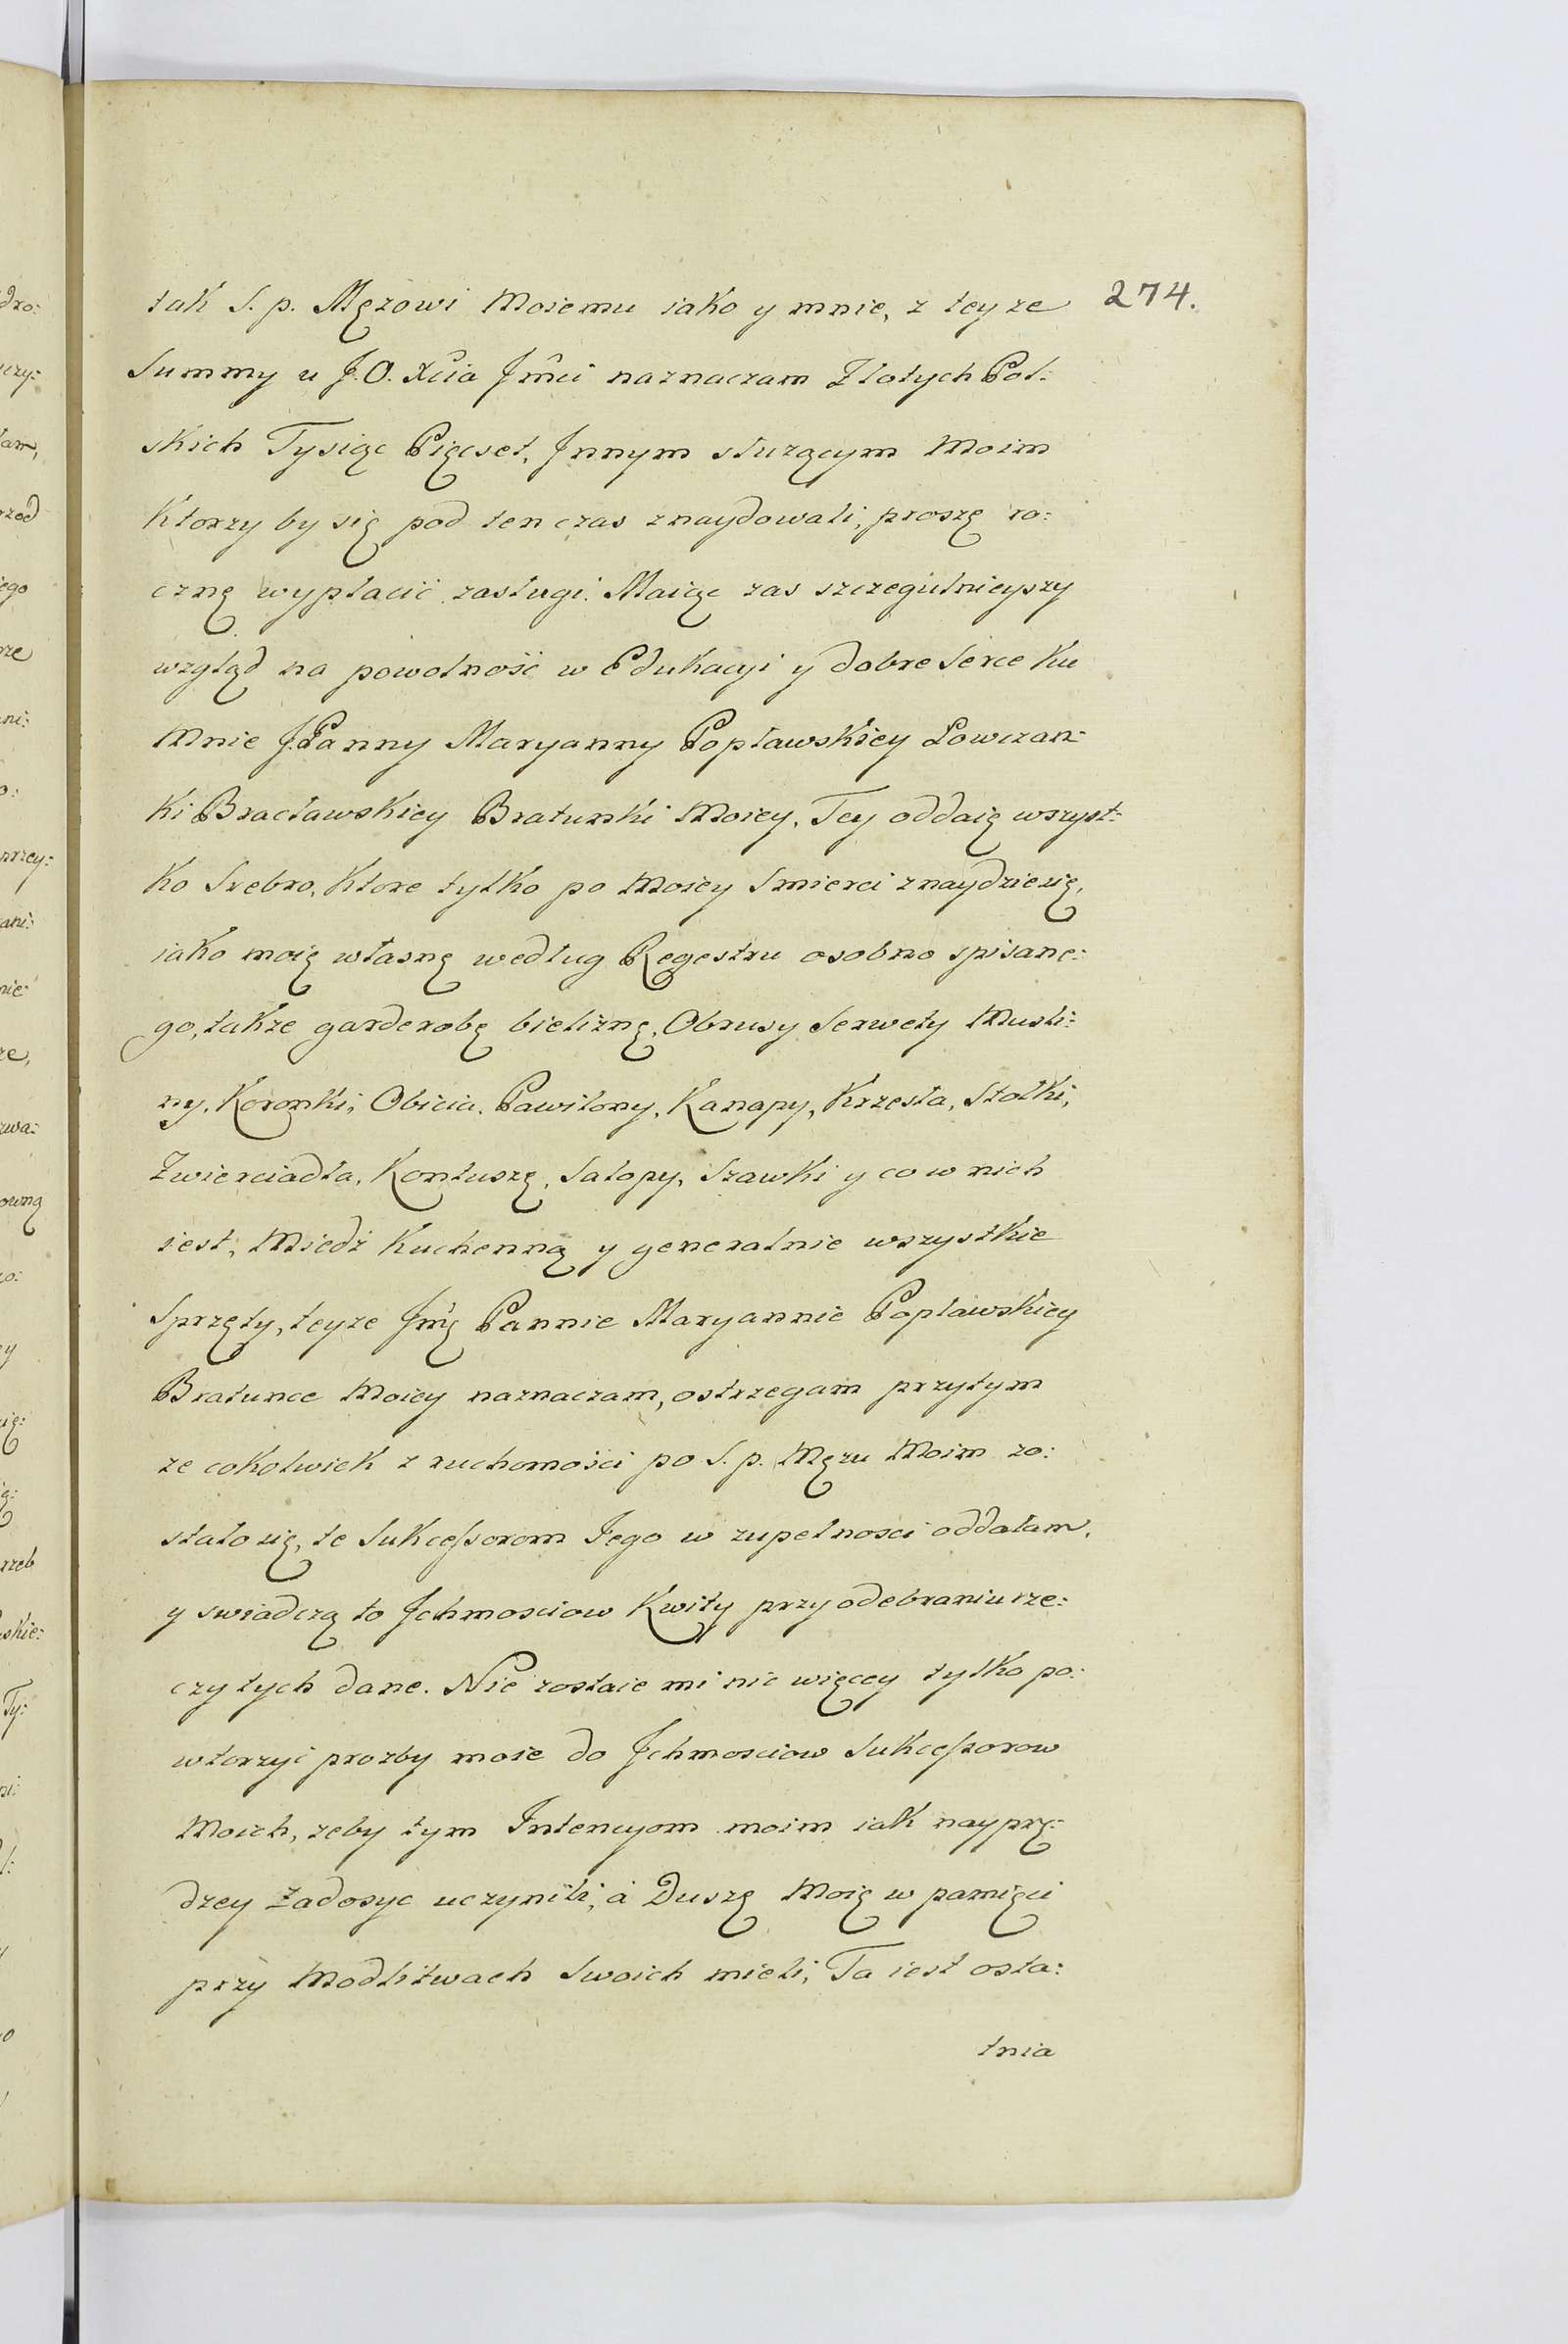 274.
tak S. p. Mężowi Moiemu iako y mnie, z teyze
Summy u J.O. Xcia Jmci naznaczam Złotych Pol:
skich Tysiąc Pięcset, Innym służącym Moim
Ktorzy by się pod ten czas znaydowali, proszę ro:
cznę wypłacić zasługi. Maiąc zas szczegulnieyszy
wzgląd na powolność w Edukacyi y dobre Serce ku
Mnie J. Panny Maryanny Popławskiey Łowczan:
ki Bracławskiey Bratunki Moiey. Tey oddaię wszyst:
ko Srebro, Ktore tylko po Moiey Smierci znaydzie się,
iako moię własnę według Regestru osobno spisane:
go, także garderobę bieliznę, Obrusy Serwety Musli:
ny, Koronki, Obicia, Pawilony, Kanapy, Krzesła, Stołki,
Zwierciadła, Kontuszę, Salopy, Szawki y co w nich
iest, Miedź Kuchenną y generalnie wszystkie
Sprzęty, teyze Jmę Pannie Maryannie Popławskiey
Bratunce Moiey naznaczam, ostrzegam przytym
ze cokolwiek z ruchomości po S. p. Mężu Moim zo:
stało się, te Sukcessorom Jego w zupełnosci oddałam,
y swiadczą to Ichmosciow Kwity przy odebraniu rze:
czy tych dane. Nie zostaie mi nic więcey tylko po:
wtorzyć prozby moie do Ichmosciow Sukcessorow
Moich, zeby tym Intencyom moim iak nayprę:
dzey Zadosyc uczynili, á Duszę Moię w pamięci
przy Modlitwach Swoich mieli, Ta iest osta:
tnia